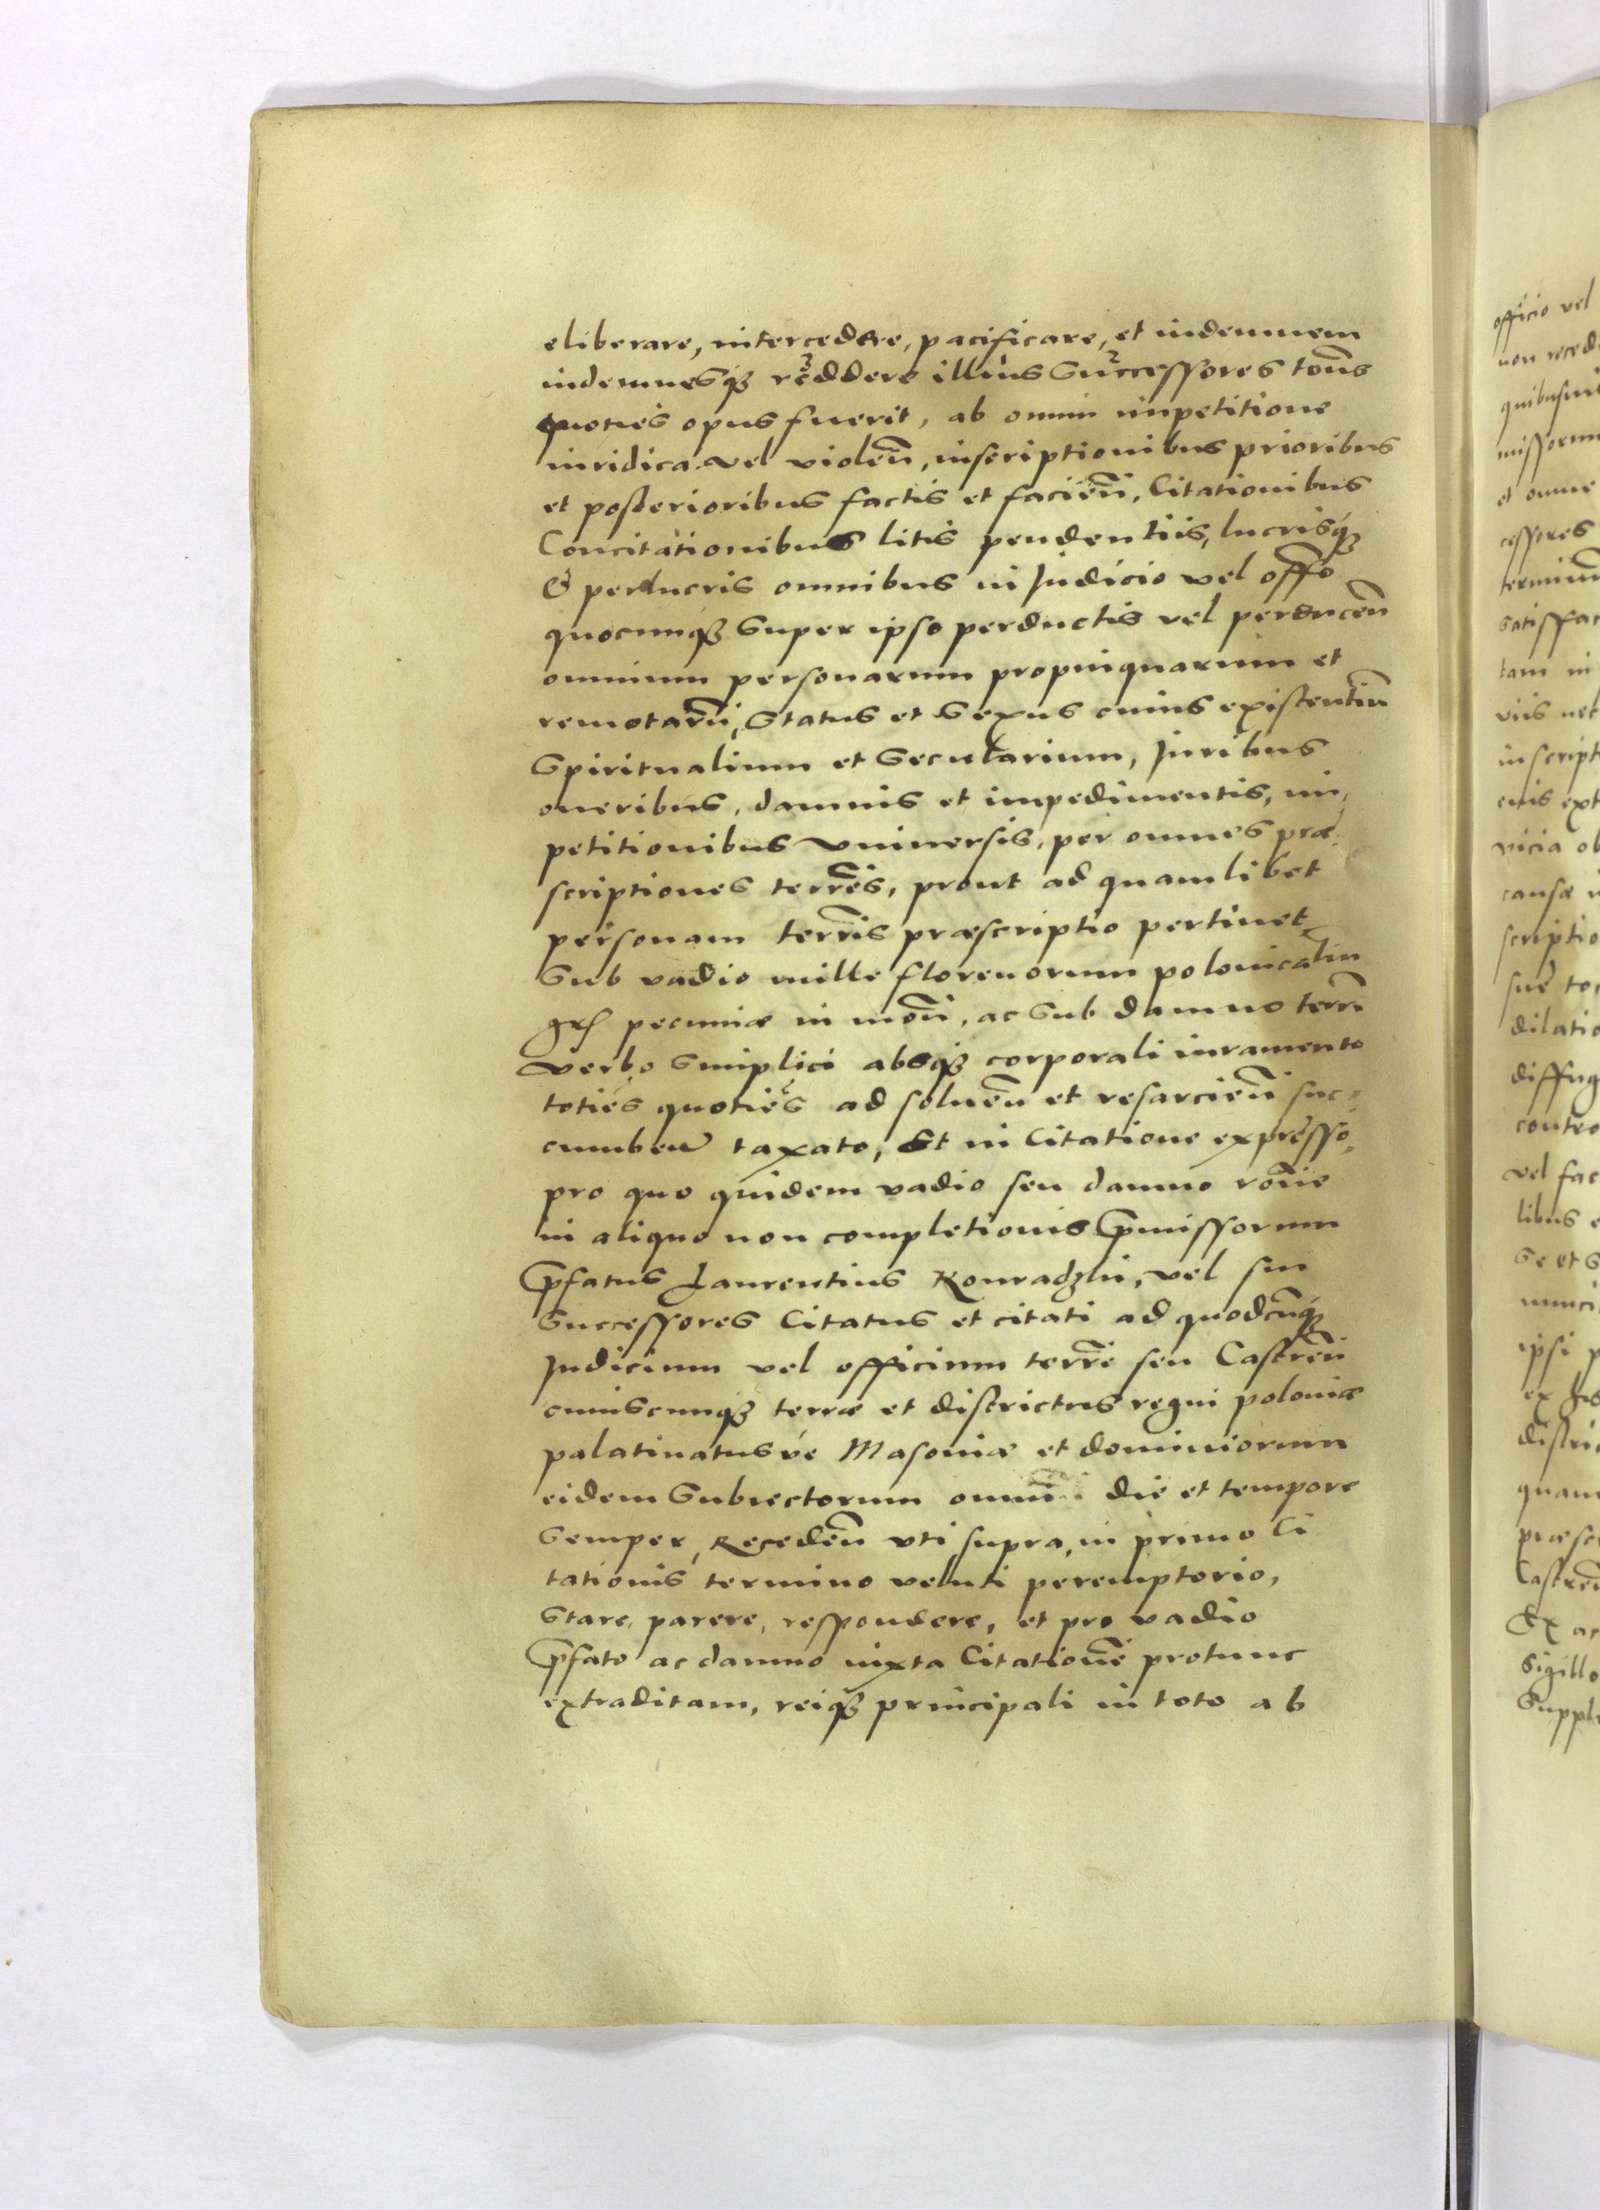 eliberare, intercedere, pacificare, et indemnem
indemnesq3 reddere illius Successores toties
quoties opus fuerit, ab omni impetitione
iuridica vel violen̄, inscriptionibus prioribus
et posterioribus factis et facien̄, Citationibus
Concitationibus litis pendentiis, lucrisq3
& perlucris omnibus in Judicio vel offo
quocunq3 Super ipso perductis vel perducen̄
omnium personarum propinquarum et
remotarū, Status et Sexus cuius existentiū
Spiritualium et Secularium, Juribus
oneribus, damnis et impedimentis, im,
petitionibus vniuersis, per omnes præ,
scriptiones terrēs, prout ad quamlibet
personam terrīs præscriptio pertinet
Sub vadio mille florenorum polonicaliū
pecuniæ in mon̄, ac Sub damno terrī
verbo Simplici absq3 corporali iuramento
toties quoties ad soluen̄ et resarcien̄ suc=
cumben̄ taxato, Et in Citatione expresso,
pro quo quidem vadio seu damno rōne
in aliquo non completionis p̄missorum
p̄fatus Laurentius Konradzlii, vel sui
Successores Citatus et citati ad quodcūq3
Judicium vel officium terrē seu Castren̄
cuiuscunq3 terræ et districtus regni poloniæ
palatinatus ve Masoniæ et dominiorum
eidem Subiectorum omni die et tempore
Semper, Receden̄ vti supra, in primo Ci
tationis termino veluti peremptorio,
Stare, parere, respondere, et pro vadio
p̄fato ac damno iuxta Citationē protunc
extraditam, reiq3 principali in toto ab
officio vel
non
missorum
et omne
cessores
terminum
tam in
viis nec
causæ
vel fac
libus
Se et S
ipsi
quam
Ex ac
Sigillo